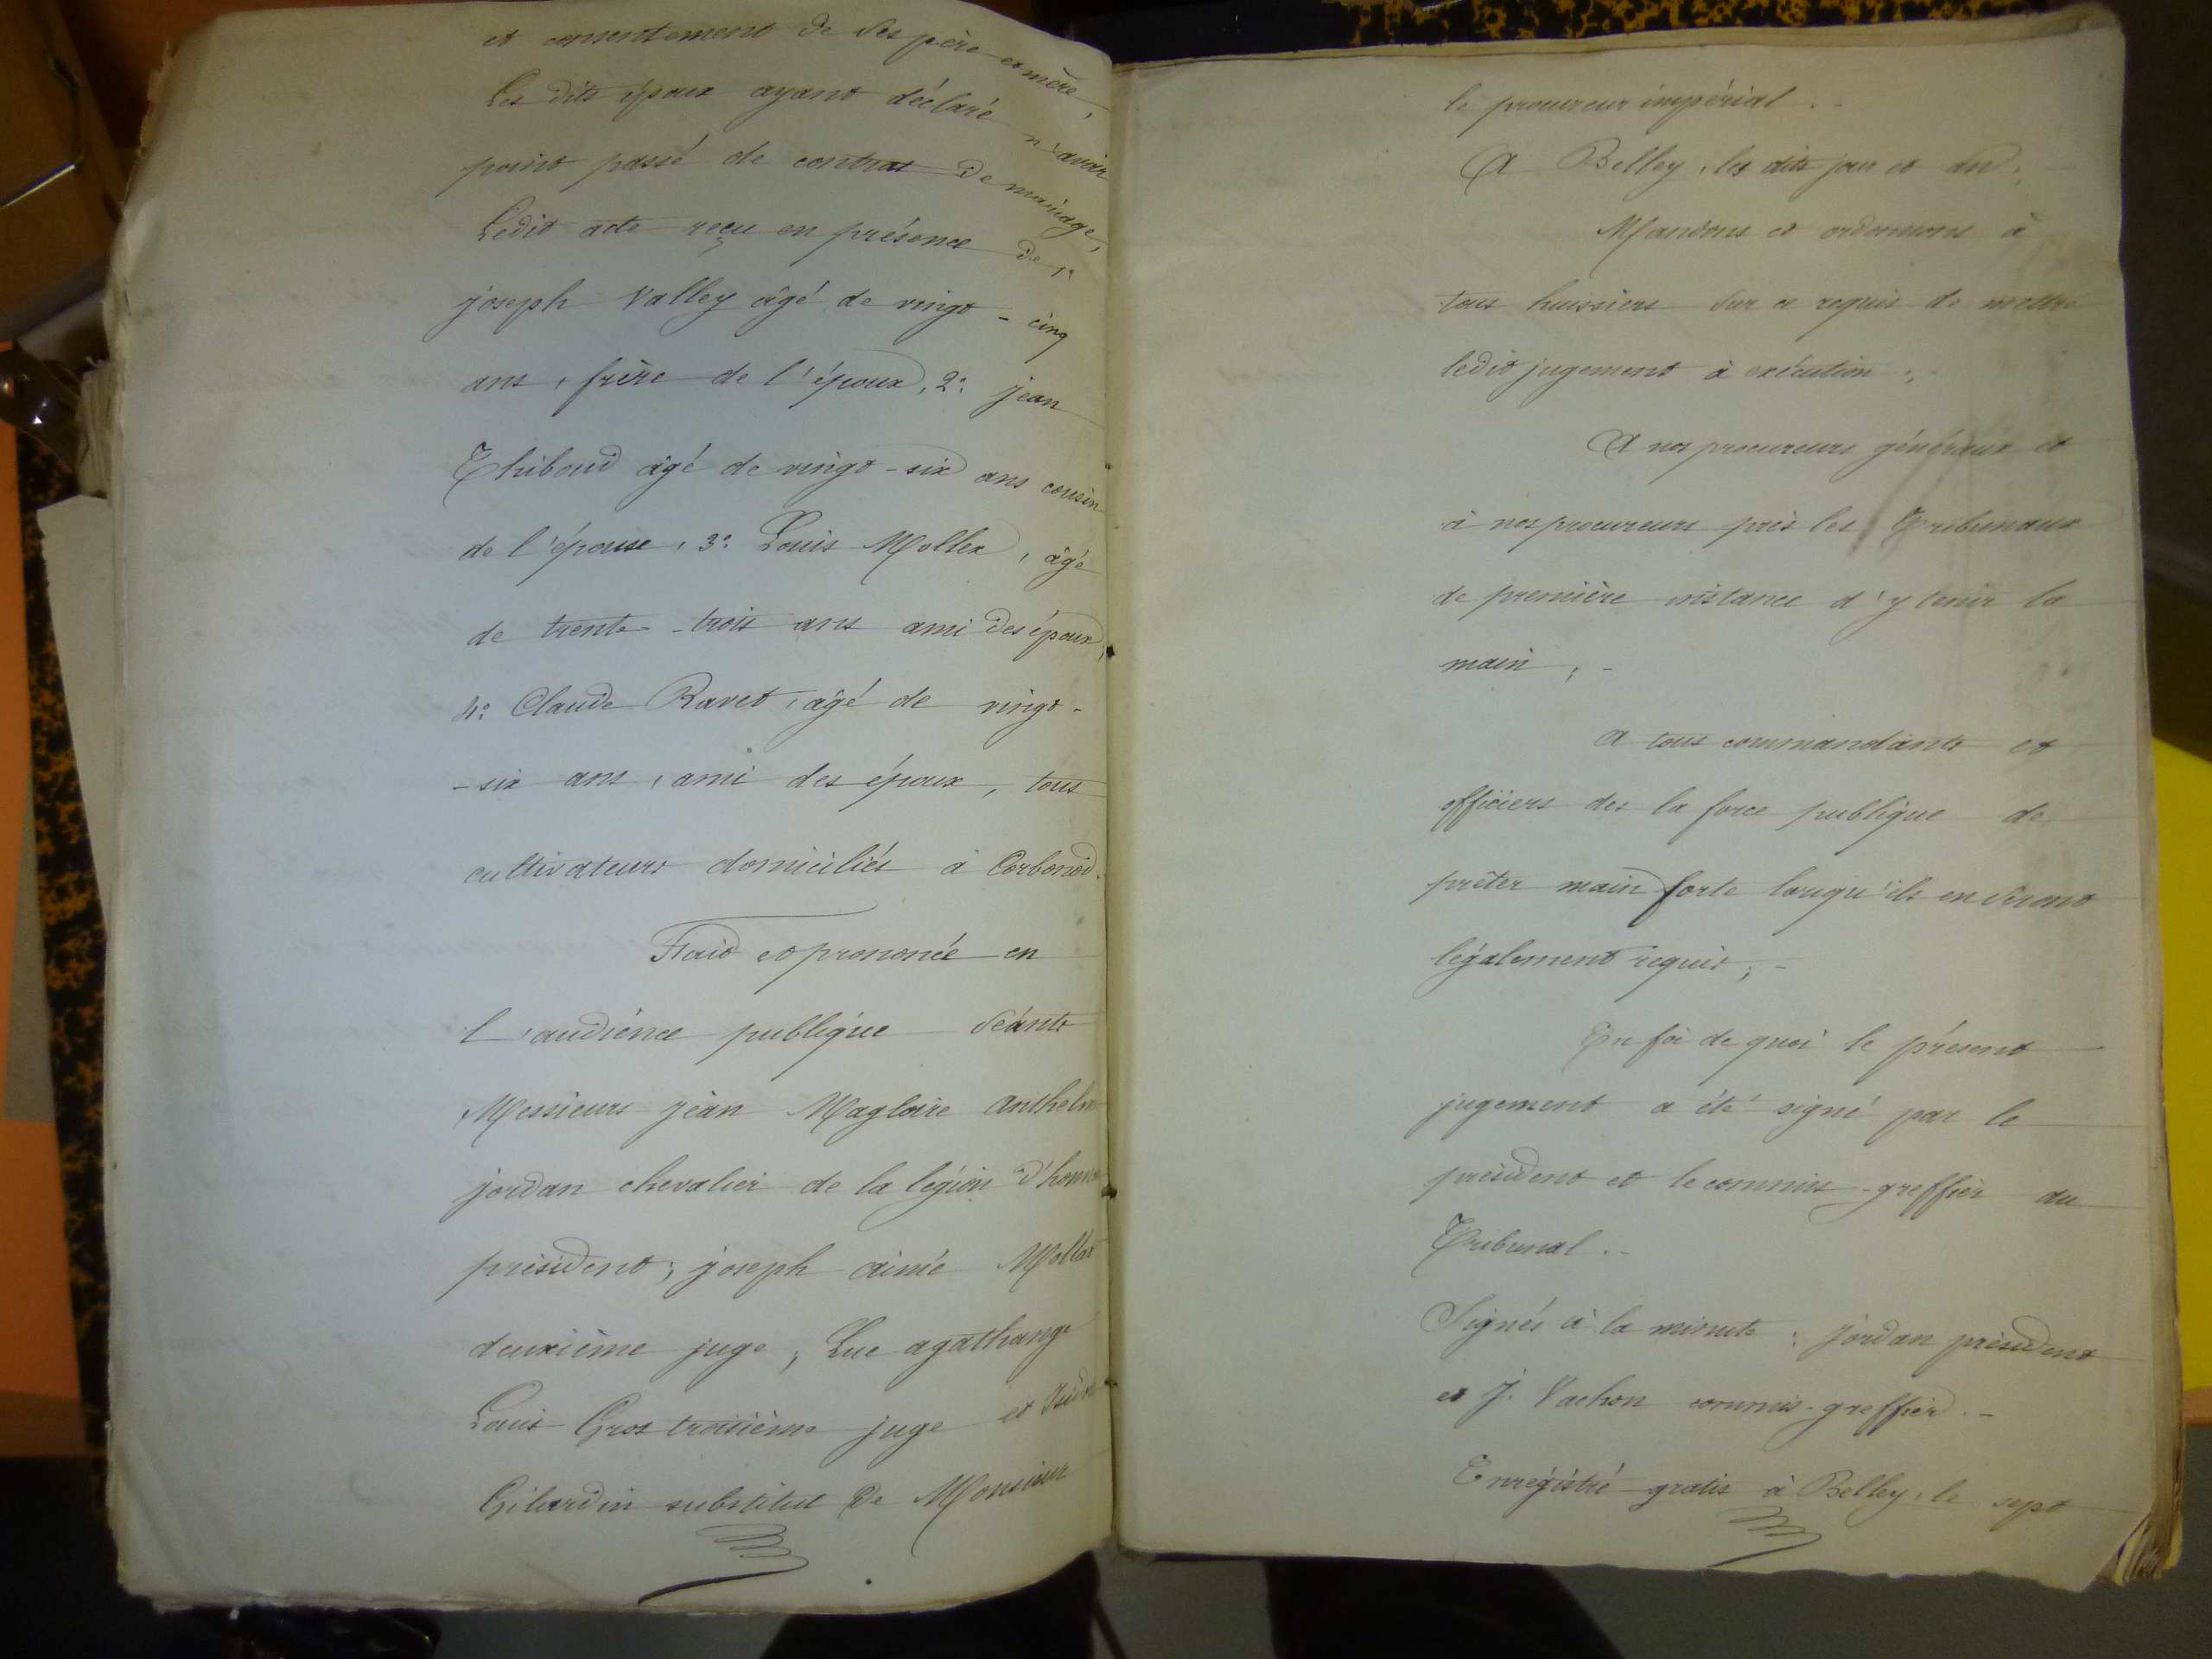 et consentement de ses père et mère,
Les dits époux ayant déclaré n'avoir
point passé de contrat de mariage,
Ledit acte reçu en présence de 1°
joseph Valley âgé de vingt-cinq
ans, frère de l'époux, 2° jean
Thiboud âgé de vingt-six ans cousin
de l'épouse, 3° Louis Mollex, âgé
de trente-trois ans ami des époux,
4° Claude Ravet, âgé de vingt-
-six ans, ami des époux, tous
cultivateurs domiciliés à Corbonod.
Fait et prononcé en
l'audience publique séante
Messieurs jean Magloire anthelme
jordan chevalier de la légion d'honneur
président; joseph aimé Mollet
deuxième juge, Luc agathange
Louis Gros troisième juge et Isidore
Gilardin substitut de Monsieur
le procureur impérial.-
A Belley, les dits jour et an;
Mandons et ordonnons à
tous huissiers sur ce requis de mettre
ledit jugement à exécution;
A nos procureurs généraux et
à nos procureurs près les Tribunaux
de première instance d'y tenir la
main;-
a tous commandants et
officiers des la force publique de
prêter main forte lorsqu'ils en seront
légalement requis;-
En foi de quoi le présent
jugement a été signé par le
président et le commis-greffier du
Tribunal.-
Signés à la minute: jordan président
et J. Vachon commis-greffier.-
Enregistré gratis à Belley, le sept